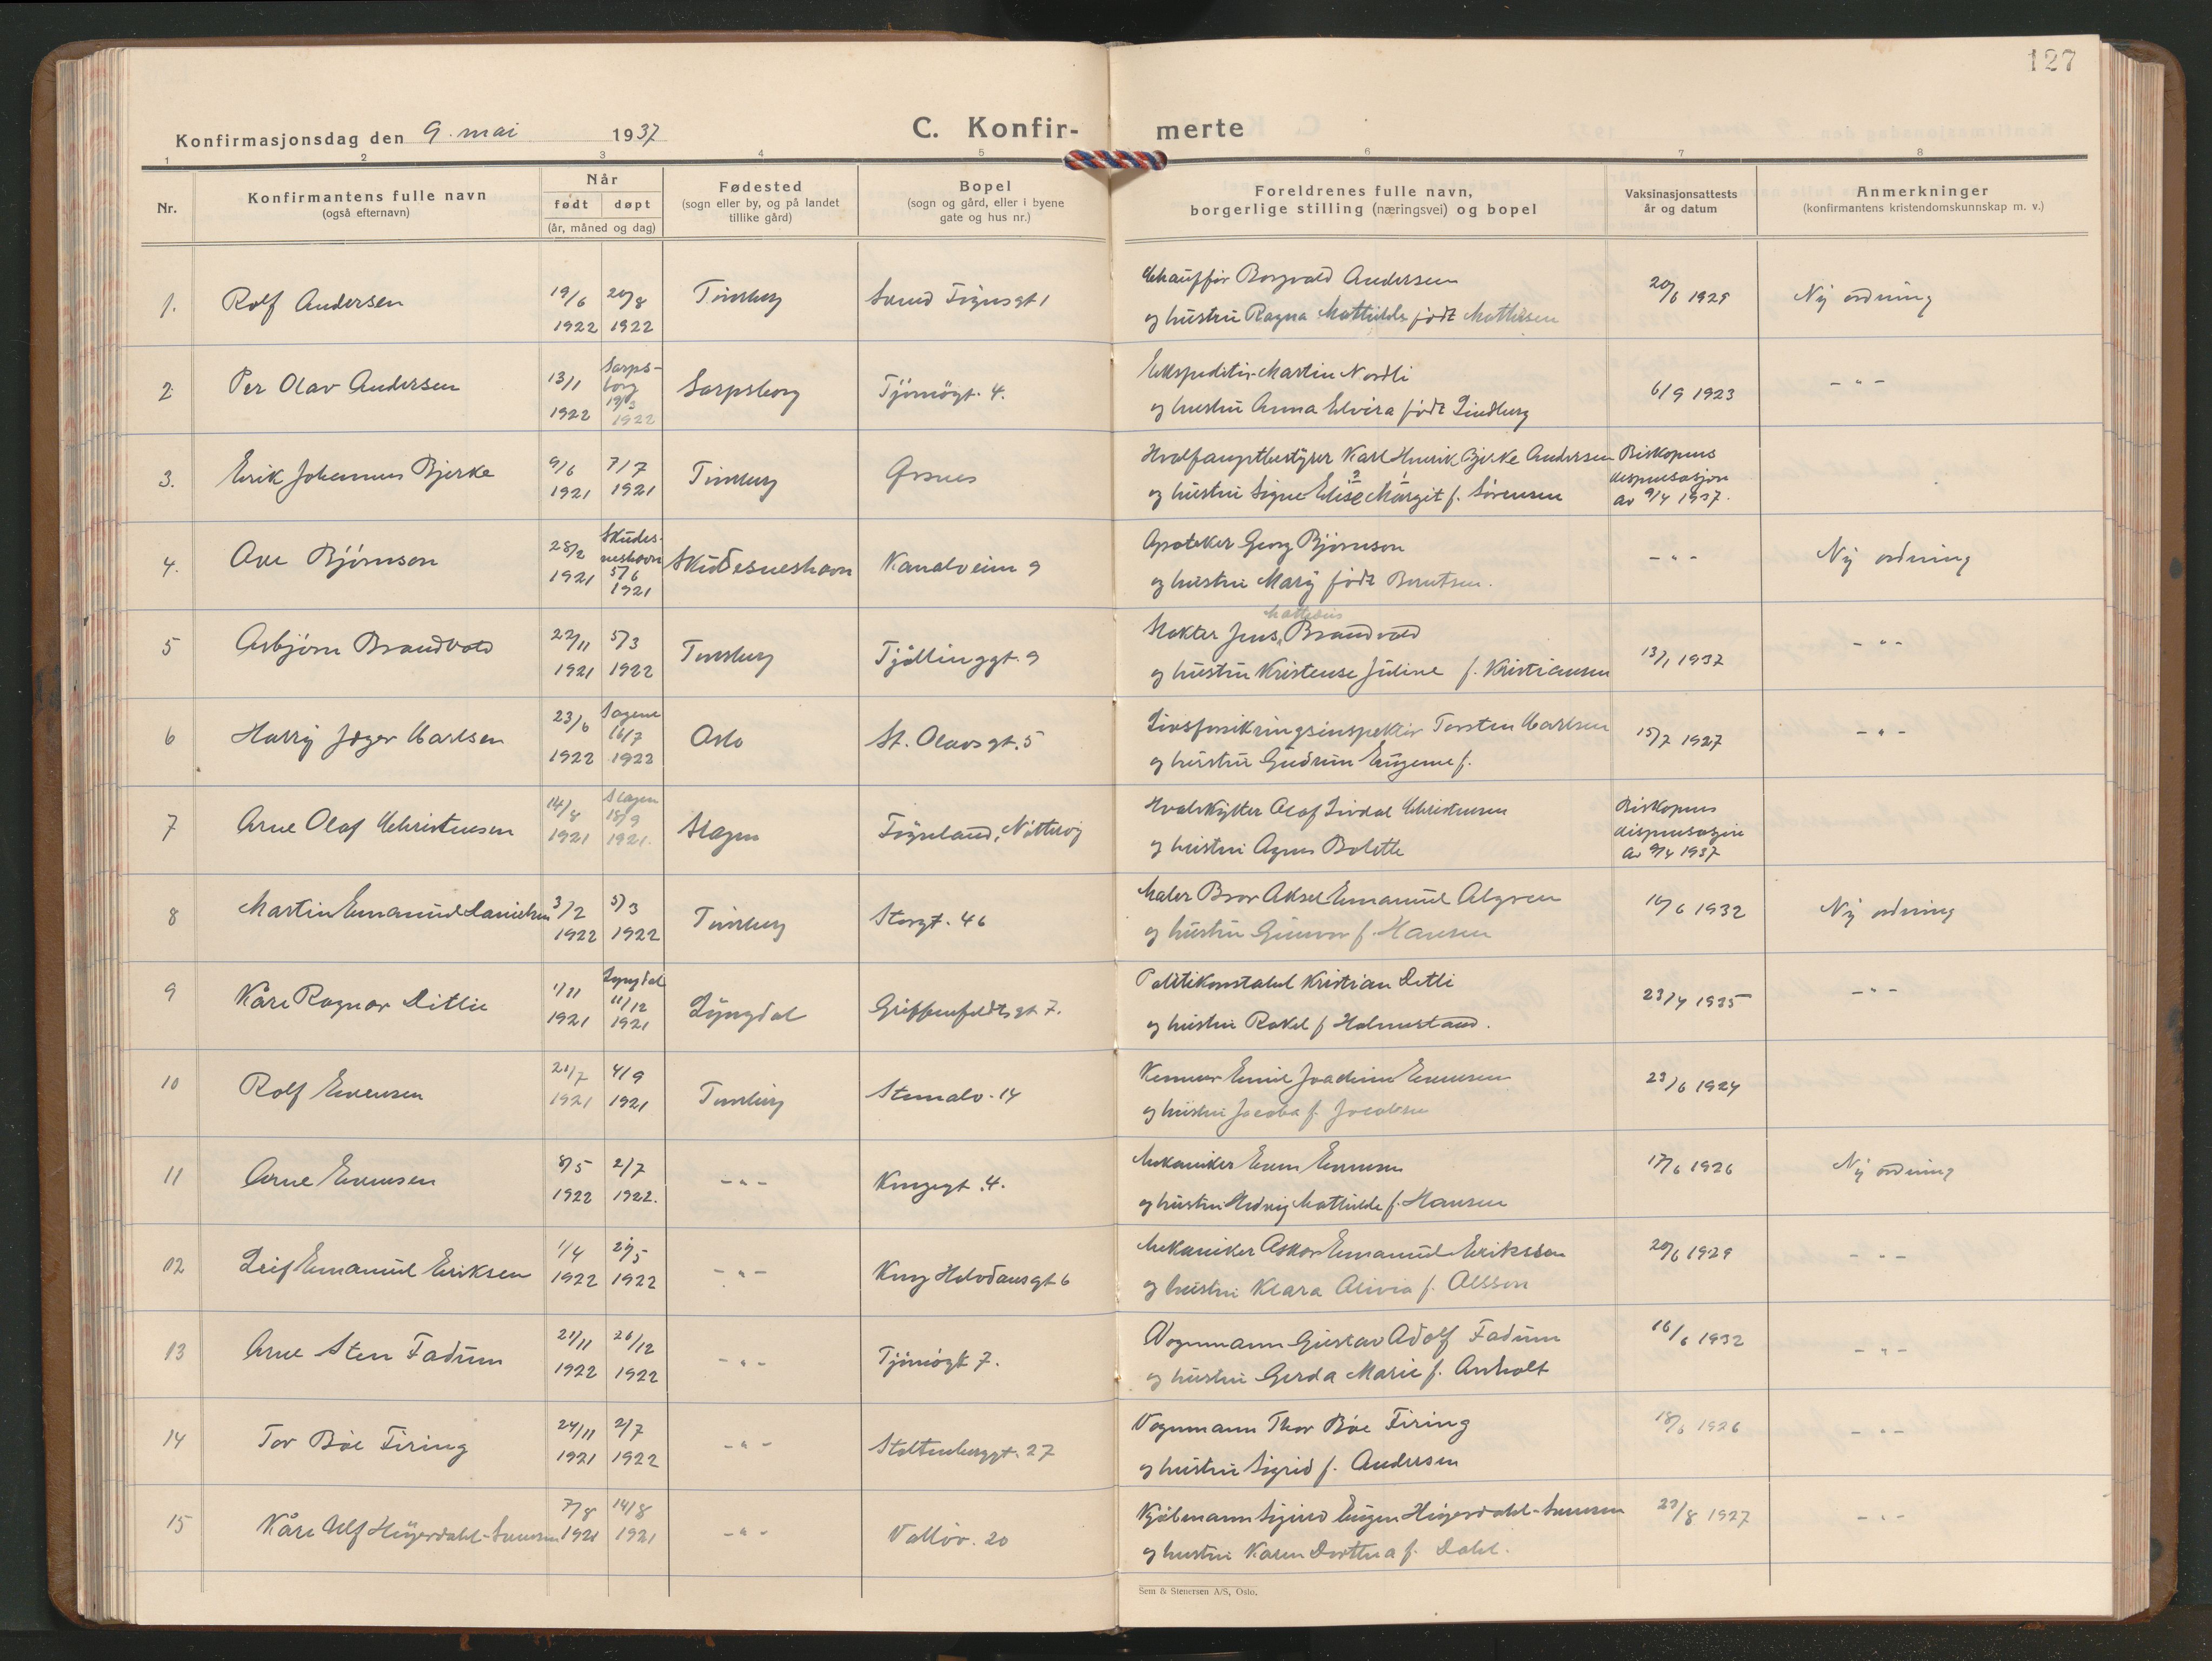 127
Konfirmasjonsdag den 9. mai 1937
C. Konfir- merte
1 2 3 4 5 6 7 8
Nr.
Konfirmantens fulle navn
(også efternavn)
Når
født døpt
(år, måned og dag)
Fødested
(sogn eller by, og på landet
tillike gård)
Bopel
(sogn og gård, eller i byene
gate og hus nr.)
Foreldrenes fulle navn,
borgerlige stilling (næringsvei) og bopel
Vaksinasjonsattests
år og datum
Anmerkninger
(konfirmantens kristendomskunnskap m. v.)
1. Rolf Andersen 19/6 1922 20/8 1922 Tønsberg Svend Føynsgt 1
Chauffør Borgvald Andersen
og hustru Ragna Mathilde født Mathisen
20/6 1929 Ny ordning
2. Per Olav Andersen 13/1 1922 Sarps-
borg
19/3
1922 Sarpsborg Tjømøgt. 4.
Ekspeditør Martin Nordli
og hustru Anna Elvira født Lindberg
6/9 1923 - " -
3. Erik Johannes Bjerke 9/6 1921 7/7 1921 Tønsberg Orsnes
Hvalfangstbestyrer Karl Henrik Bjerke Andersen
og hustru Signe Elise Margit f. Sørensen
Biskopens
dispensasjon
av 9/4 1937.
4. Ove Bjørnson 28/2 1921 Skudes-
neshavn
5/6
1921 Skudesneshavn Kanalveien 9
Apoteker Georg Bjørnson
og hustru Mary født Berntsen.
- " - Ny ordning
5 Asbjørn Brandvold 22/11 1921 5/3 1922 Tønsberg Tjøllinggt. 9
Slakter Jens Matheus Brandvold
og hustru Kristense Juline f. Kristiansen
13/1 1937 - " -
6 Harry Jæger Carlsen 23/6 1922 Sagene
16/7
1922 Oslo St. Olavsgt. 5
Livsforsikringsinspektør Torsten Carlsen
og hustru Gudrun Eugenie f.
15/7 1927 - " -
7 Arne Olaf Christensen 14/8 1921 Slagen
18/9
1921. Slagen Føyneland, Nøtterøy
Hvalskytter Olaf Lindal Christensen
og hustru Agnes Bolette
Biskopens
dispensasjon
av 9/4 1937
8 Martin Emanuel Danielsen 3/2 1922 5/3 1922 Tønsberg Storgt. 46
Maler Bror Aksel Emanuel Algren
og hustru Gunvor f. Hansen
16/6 1932 Ny ordning
9 Kåre Ragnar Ditlie 1/11 1921 Lyngdal
11/12
1921 Lyngdal Griffenfeldtsgt 7.
Politikonstabel Kristian Ditli
og hustru Rakel f Holmestand.
23/4 1935 - " -
10 Rolf Evensen 21/7 1921 4/9 1921 Tønsberg Stenmalv. 14
Kemner Emil Joachim Evensen
og hustru Jacoba f. Jacobsen
23/6 1924
11 Arne Evensen 8/5 1922 2/7 1922. - " - Kongegt. 4.
Mekaniker Even Evensen
og hustru Hedvig Mathilde f. Hansen
17/6 1926 Ny ordning
12 Leif Emanuel Eriksen 1/4 1922 21/5 1922 - " - Kong Halvdansgt 6
Mekaniker Oskar Emanuel Eriksson
og hustru Klara Olivia f. Olsson
20/6 1929 - " -
13 Arne Sten Fadum 21/11 1922 26/12 1922 - " - Tjømøgt 7.
Vognmann Gustav Adolf Fadum
og hustru Gerda Marie f. Anholt
16/6 1932 - " -
14 Tor Bøe Firing 24/11 1921 2/7 1922 - " - Stoltenberggt. 27
Vognmann Thor Bøe Firing
og hustru Sigrid f. Andersen
18/6 1926 - " -
15 Kåre Ulf Høyerdahl-Svensen 7/8 1921 14/8 1921 - " - Valløv. 20
Kjølmann Sigurd Eugen Høyerdahl-Svensen
og hustru Karen Dorthea f. Dahl.
23/8 1927 - " -
Sem & Stenersen A/S, Oslo.